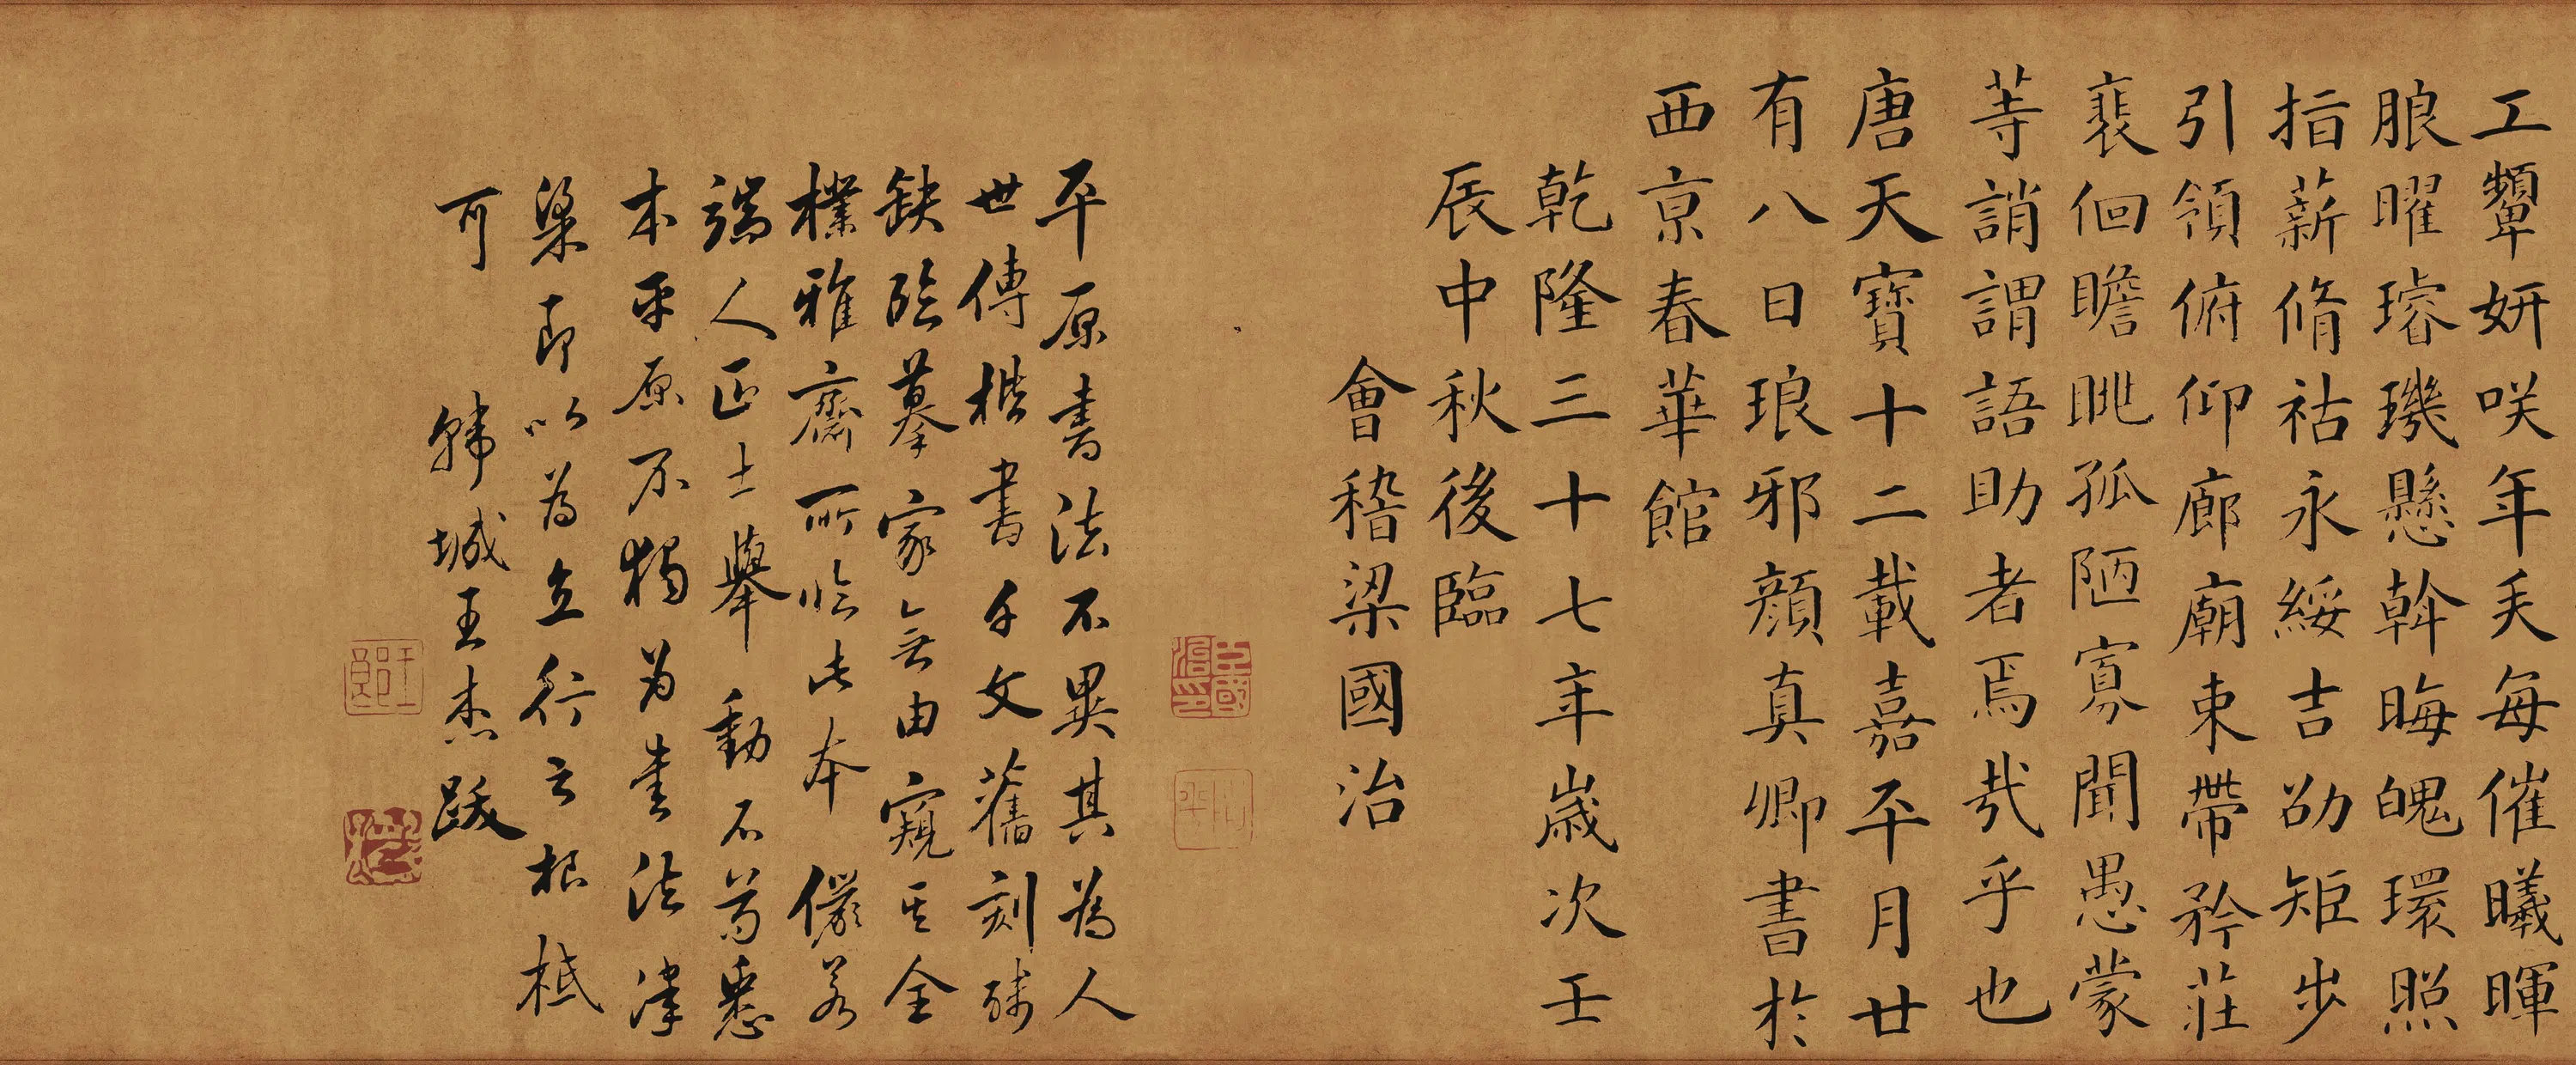 工顰妍咲年矢每催曦暉
朖曜璿璣懸斡晦魄環照
指薪脩祜永綏吉劭矩步
引領俯仰廊廟束帶矜莊
裵徊瞻眺孤陋寡聞愚蒙
等誚謂語助者焉哉乎也
唐天寶十二載嘉平月廿
有八日琅邪顏真卿書於
西京春華館
乾隆三十七年歲次壬
辰中秋後臨
會稽梁國治
平原書法不異其為人
世傳楷書千文舊刻殘
缺臨摹家無由窺其全
樸雅齋所臨此本儼若
端人正士舉動不苟悉
本平原不獨為書法津
梁即以為立行之根柢
可 韓城王杰跋